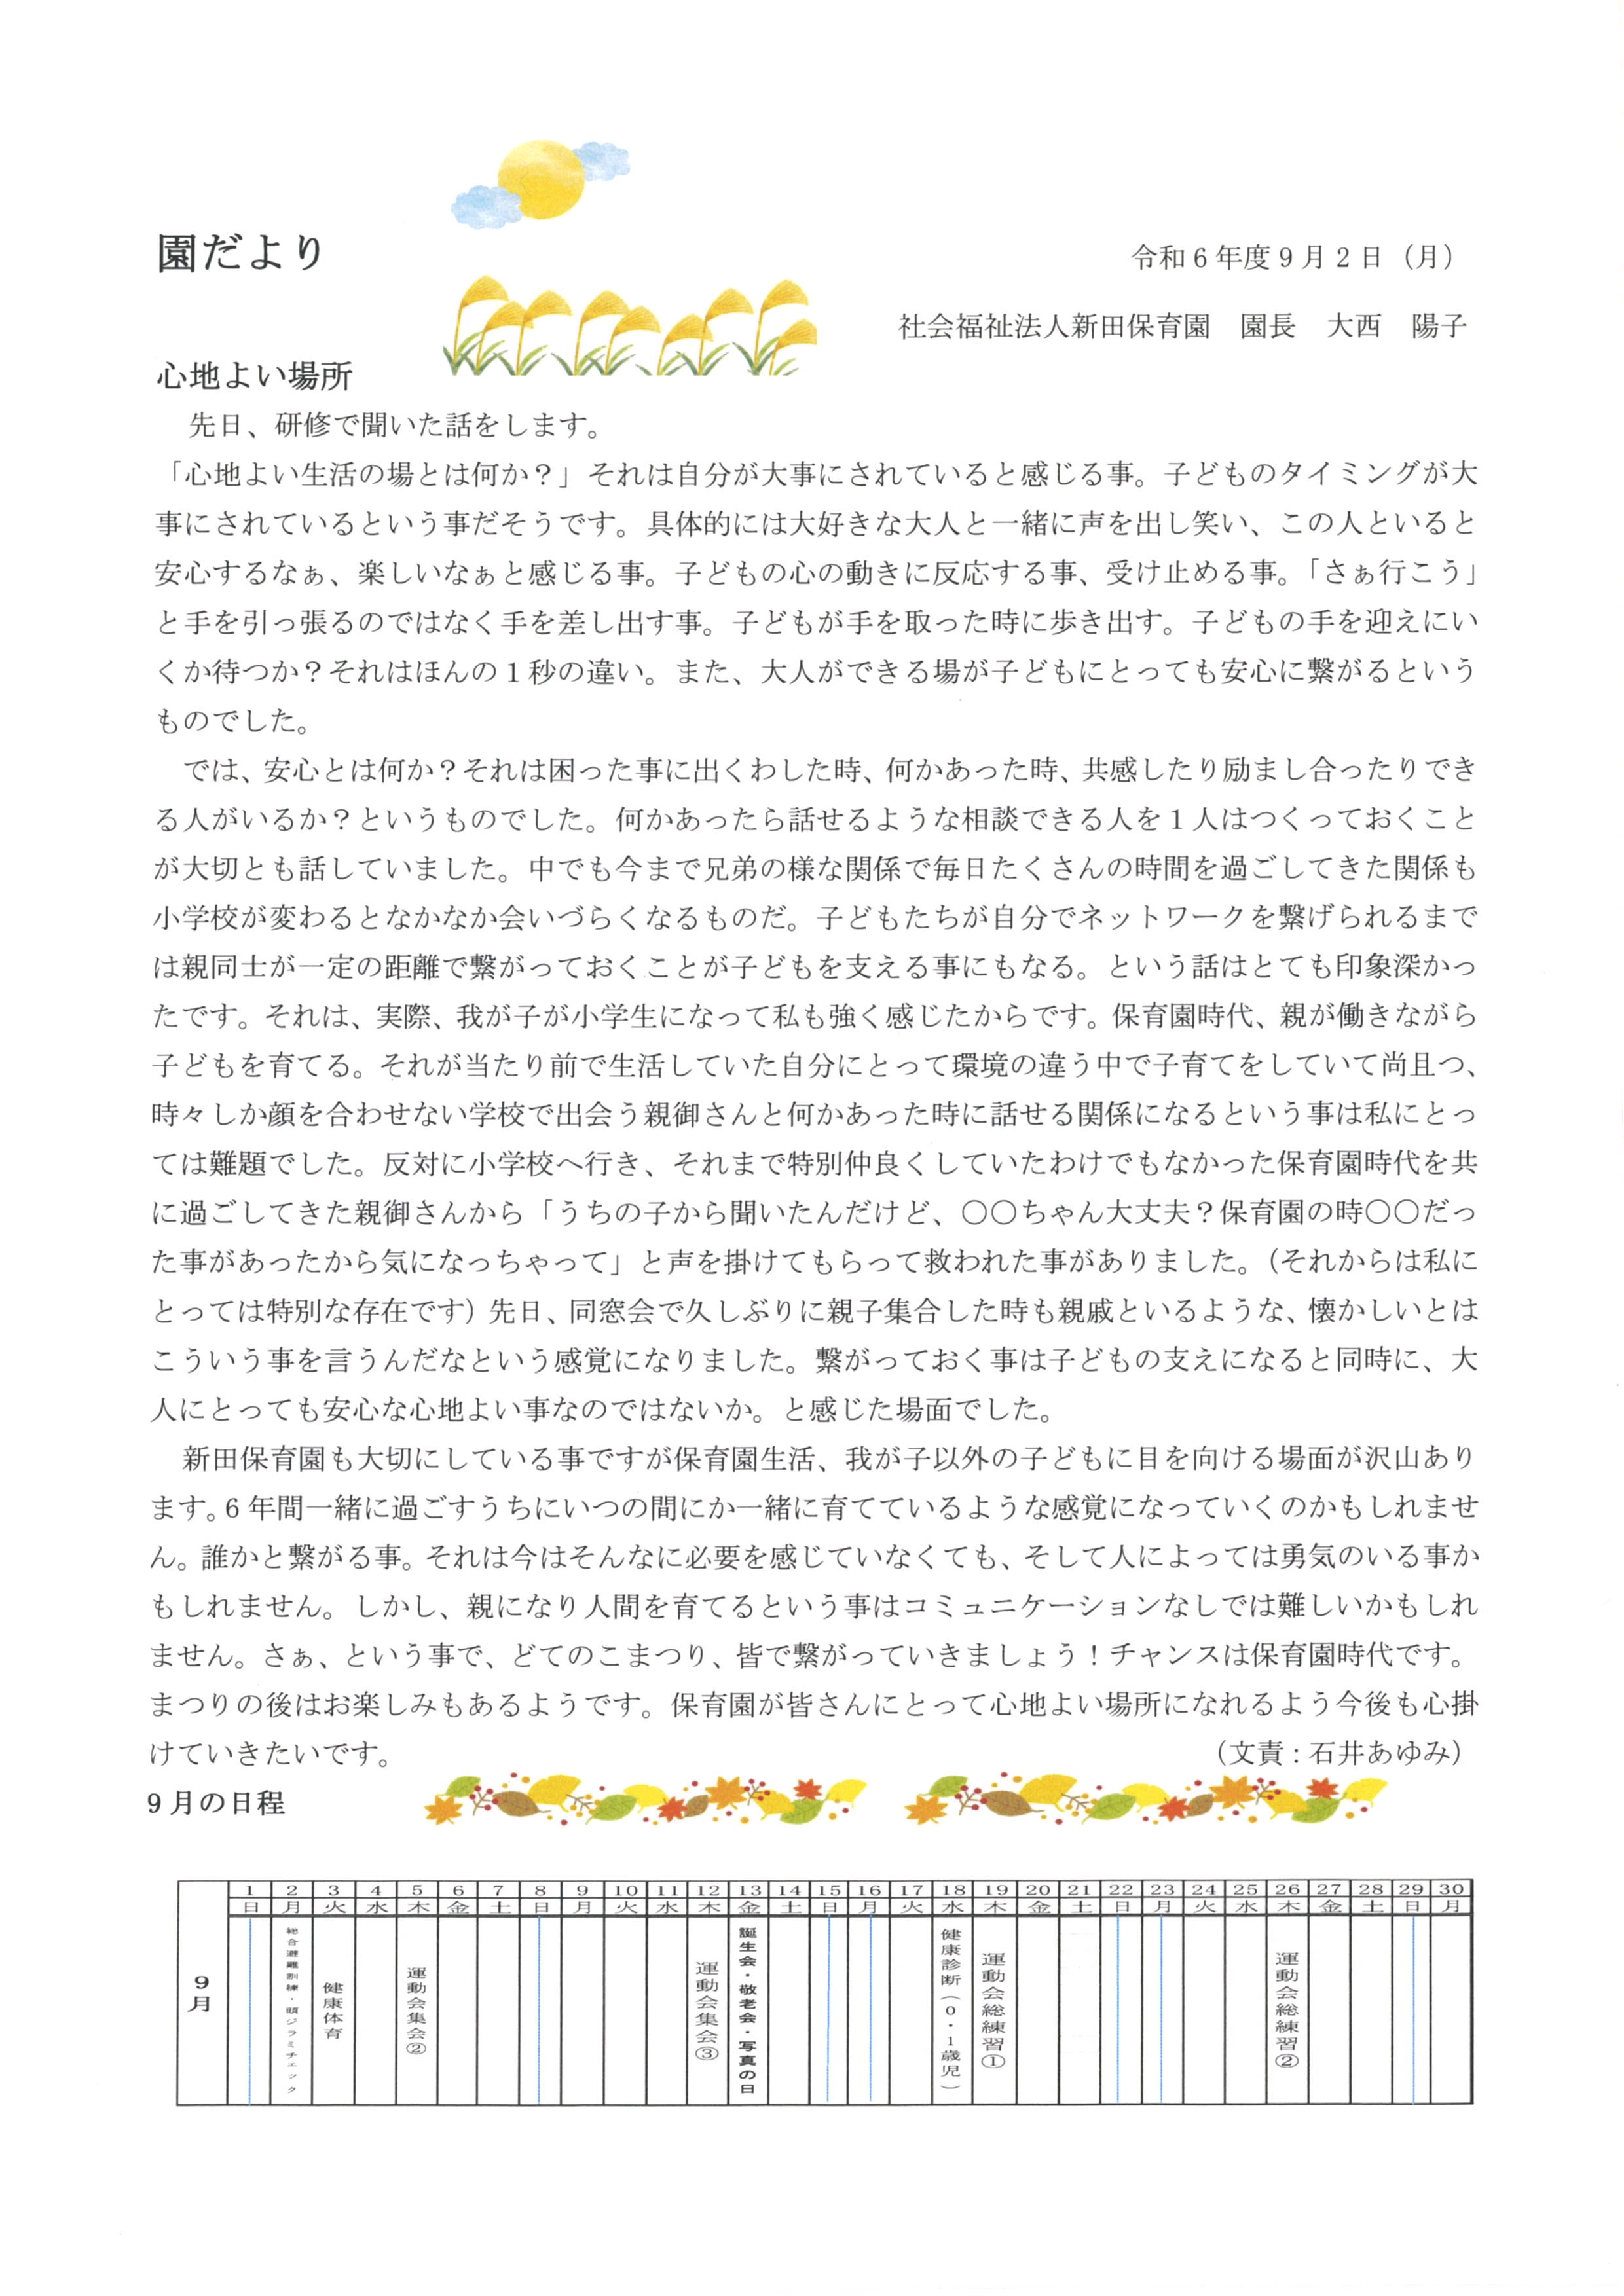 園だより
令和6年度9月2日（月）
社会福祉法人新田保育園　園長　大西　陽子
心地よい場所
先日、研修で聞いた話をします。
「心地よい生活の場とは何か？」それは自分が大事にされていると感じる事。子どものタイミングが大
事にされているという事だそうです。具体的には大好きな大人と一緒に声を出し笑い、この人といると
安心するなぁ、楽しいなぁと感じる事。子どもの心の動きに反応する事、受け止める事。「さぁ行こう」
と手を引っ張るのではなく手を差し出す事。子どもが手を取った時に歩き出す。子どもの手を迎えにい
くか待つか？それはほんの１秒の違い。また、大人ができる場が子どもにとっても安心に繋がるという
ものでした。
では、安心とは何か？それは困った事に出くわした時、何かあった時、共感したり励まし合ったりでき
る人がいるか？というものでした。何かあったら話せるような相談できる人を１人はつくっておくこと
が大切とも話していました。中でも今まで兄弟の様な関係で毎日たくさんの時間を過ごしてきた関係も
小学校が変わるとなかなか会いづらくなるものだ。子どもたちが自分でネットワークを繋げられるまで
は親同士が一定の距離で繋がっておくことが子どもを支える事にもなる。という話はとても印象深かっ
たです。それは、実際、我が子が小学生になって私も強く感じたからです。保育園時代、親が働きながら
子どもを育てる。それが当たり前で生活していた自分にとって環境の違う中で子育てをしていて尚且つ、
時々しか顔を合わせない学校で出会う親御さんと何かあった時に話せる関係になるという事は私にとっ
ては難題でした。反対に小学校へ行き、それまで特別仲良くしていたわけでもなかった保育園時代を共
に過ごしてきた親御さんから「うちの子から聞いたんだけど、〇〇ちゃん大丈夫？保育園の時〇〇だっ
た事があったから気になっちゃって」と声を掛けてもらって救われた事がありました。（それからは私に
とっては特別な存在です）先日、同窓会で久しぶりに親子集合した時も親戚といるような、懐かしいとは
こういう事を言うんだなという感覚になりました。繋がっておく事は子どもの支えになると同時に、大
人にとっても安心な心地よい事なのではないか。と感じた場面でした。
新田保育園も大切にしている事ですが保育園生活、我が子以外の子どもに目を向ける場面が沢山あり
ます。6年間一緒に過ごすうちにいつの間にか一緒に育てているような感覚になっていくのかもしれませ
ん。誰かと繋がる事。それは今はそんなに必要を感じていなくても、そして人によっては勇気のいる事か
もしれません。しかし、親になり人間を育てるという事はコミュニケーションなしでは難しいかもしれ
ません。さぁ、という事で、どてのこまつり、皆で繋がっていきましょう！チャンスは保育園時代です。
まつりの後はお楽しみもあるようです。保育園が皆さんにとって心地よい場所になれるよう今後も心掛
けていきたいです。　（文責：石井あゆみ）
9月の日程
1 2 3 4 5 6 7 8 9 10 11 12 13 14 15 16 17 18 19 20 21 22 23 24 25 26 27 28 29 30
日 月 火 水 木 金 土 日 月 火 水 木 金 土 日 月 火 水 木 金 土 日 月 火 水 木 金 土 日 月
9月
総合避難訓練・頭ジラミチェック
健康体育
運動会集会②
運動会集会③
誕生会・敬老会・写真の日
健康診断（0・1歳児）
運動会総練習①
運動会総練習②